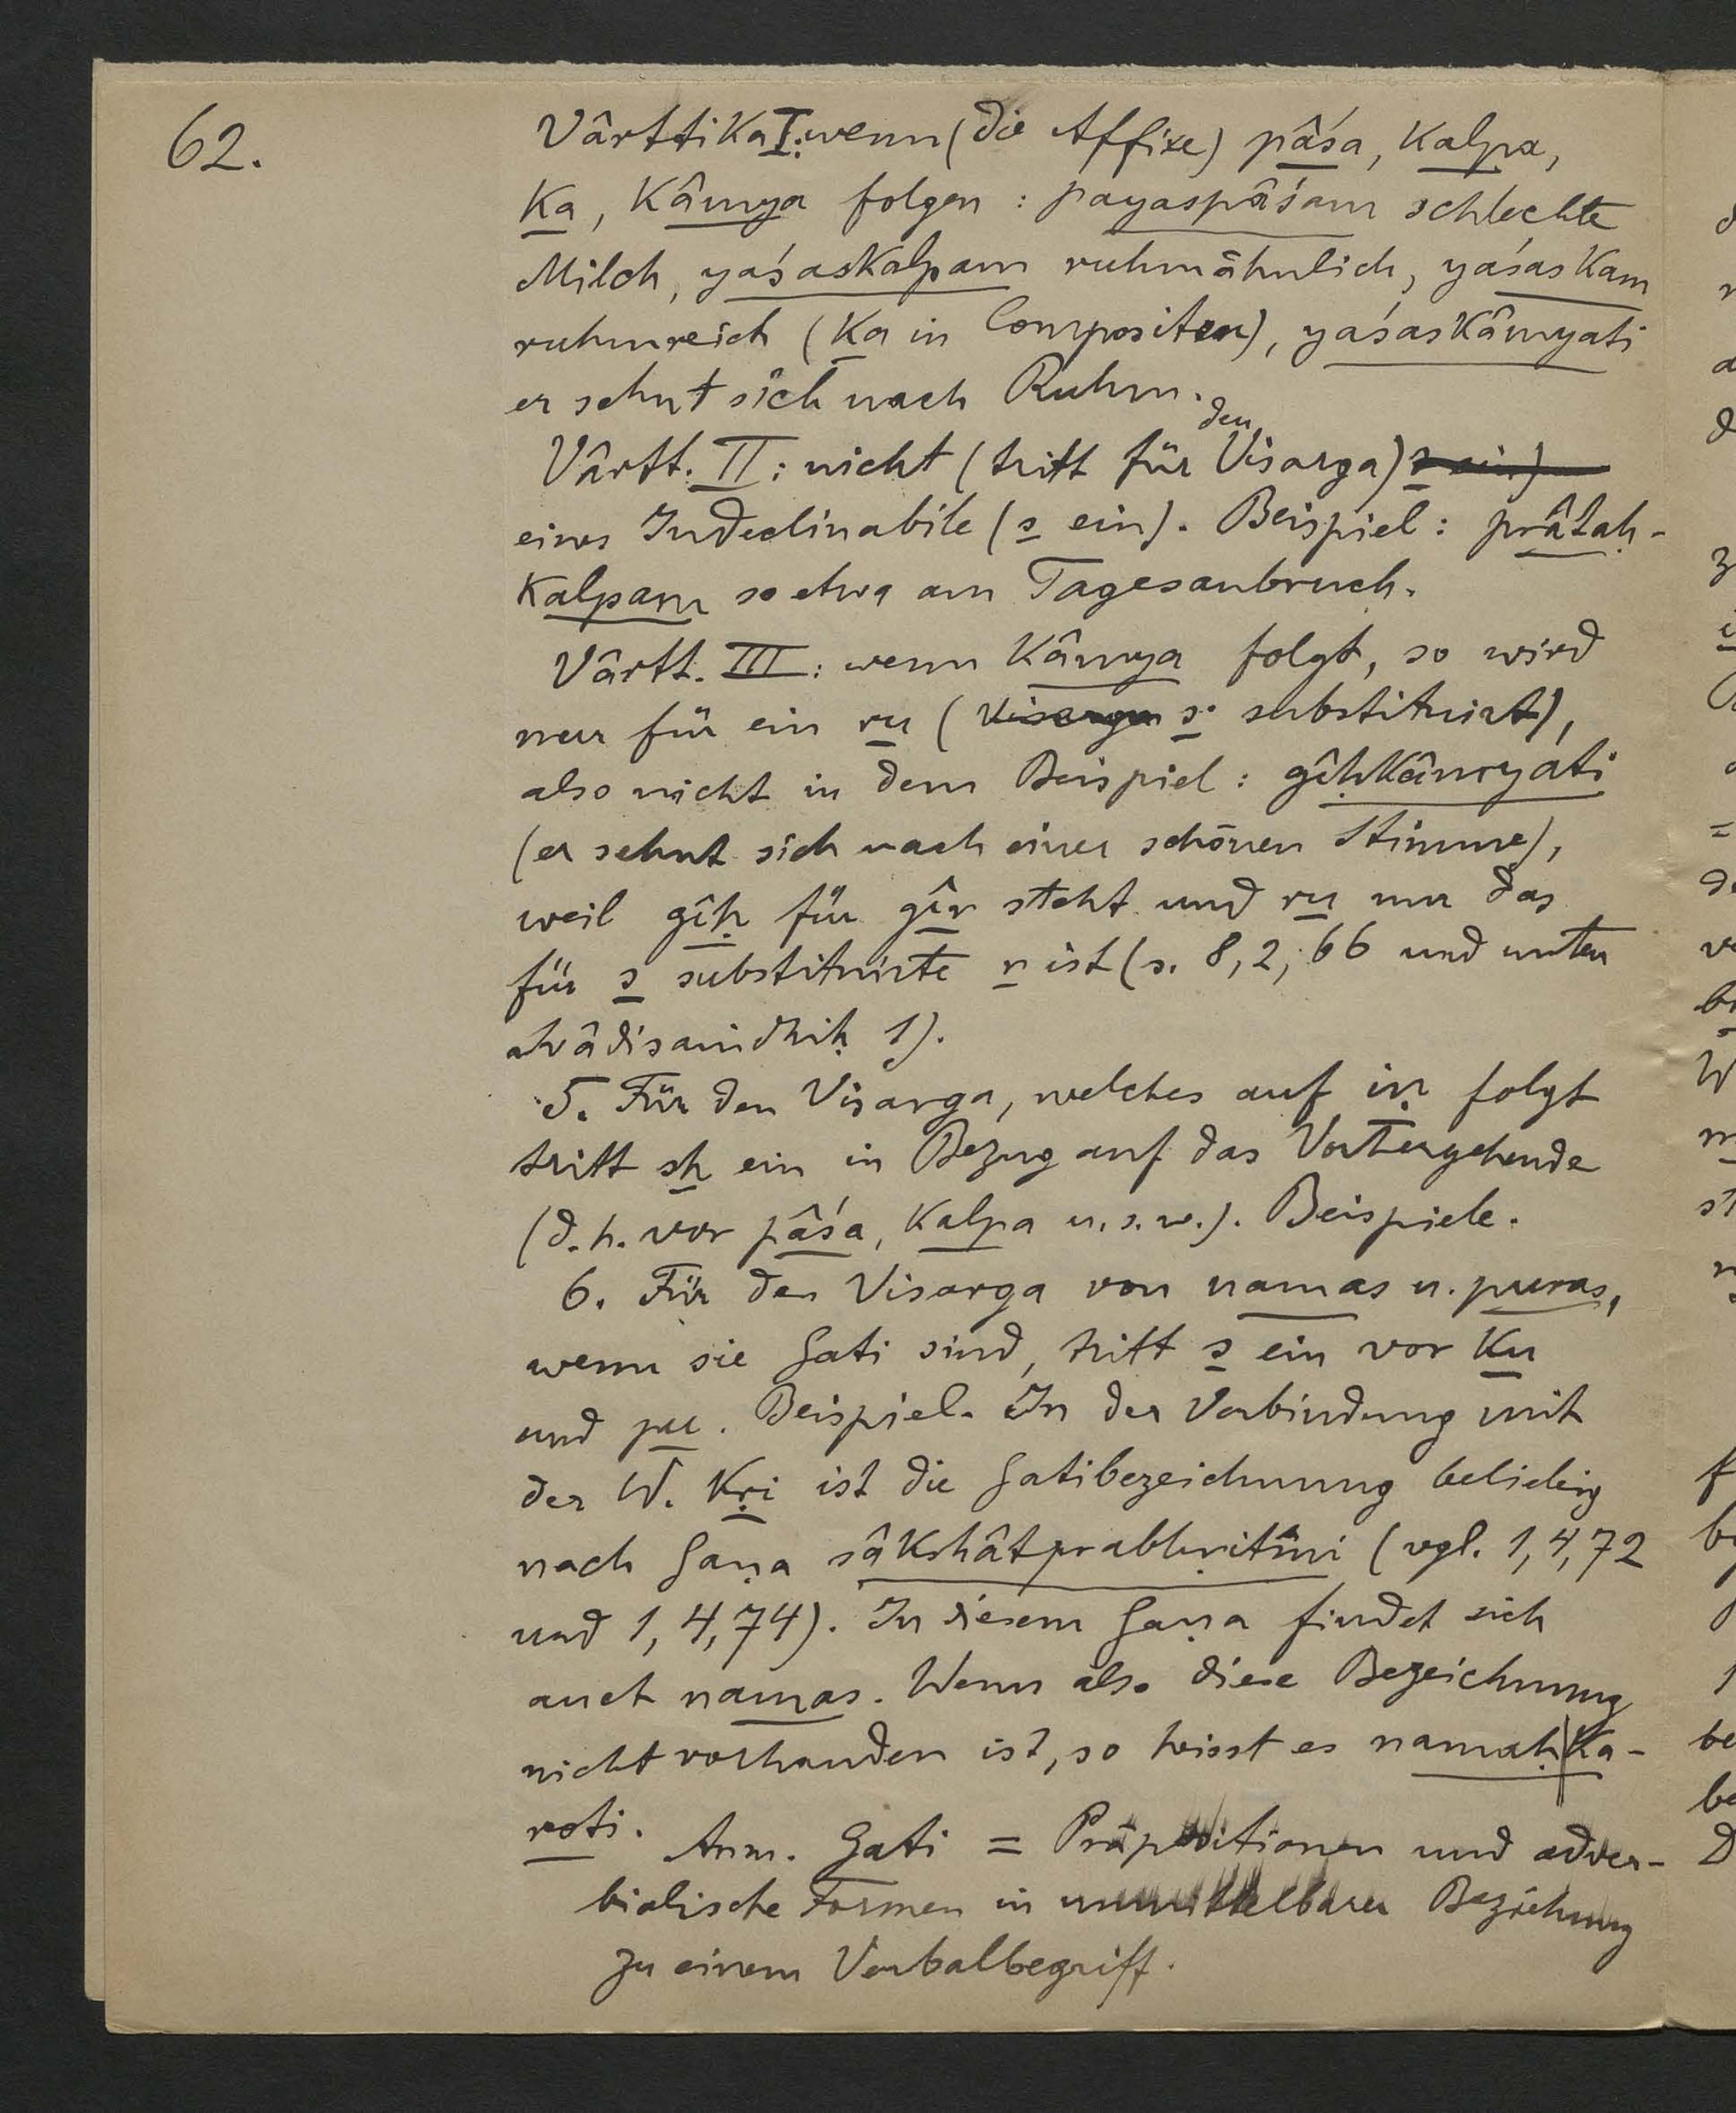 62.
Vârttika I: wenn (die Affixe) pâśa, kalpa,
ka, kâmya folgen: payaspâśam schlechte
Milch, yaśaskalpam ruhmähnlich, yaśaskam
ruhmreich (ka in Compositen), yaśaskâmyati
er sehnt sich nach Ruhm.
den
Vârtt. II: nicht (tritt für Visarga) s ein)
eines Indeclinabile (s ein). Beispiel: prâtaḥ-
kalpam so etwa am Tagesanbruch.
Vârtt. III: wenn kâmya folgt, so wird
nur für ein ru (Visarga s substituirt),
also nicht in dem Beispiel: gîḥkâmyati
(er sehnt sich nach einer schönen Stimme),
weil gîḥ für gîr steht und ru nur das
für s substituirte r ist (s. 8,2,66 und unten
svâdisaṃdhiḥ 1).
5. Für den Visarga, welches auf iṇ folgt
tritt sh ein in Bezug auf das Vorhergehende
(d.h. vor pâśa, kalpa u.s.w.). Beispiele.
6. Für den Visarga von namas u. puras,
wenn sie Gati sind, tritt s ein vor ku
und pu. Beispiel. In der Verbindung mit
der W. kṛi ist die Gatibezeichnung beliebig
nach Gaṇa sâkshâtprabhṛitîni (vgl. 1,4,72
und 1,4,74). In diesem Gaṇa findet sich
auch namas. Wenn also diese Bezeichnung
nicht vorhanden ist, so heisst es namaḥ|ka-
roti.
Anm. Gati = Präpositionen und adver-
bialische Formen in unmittelbarer Beziehung
zu einem Verbalbegriff.